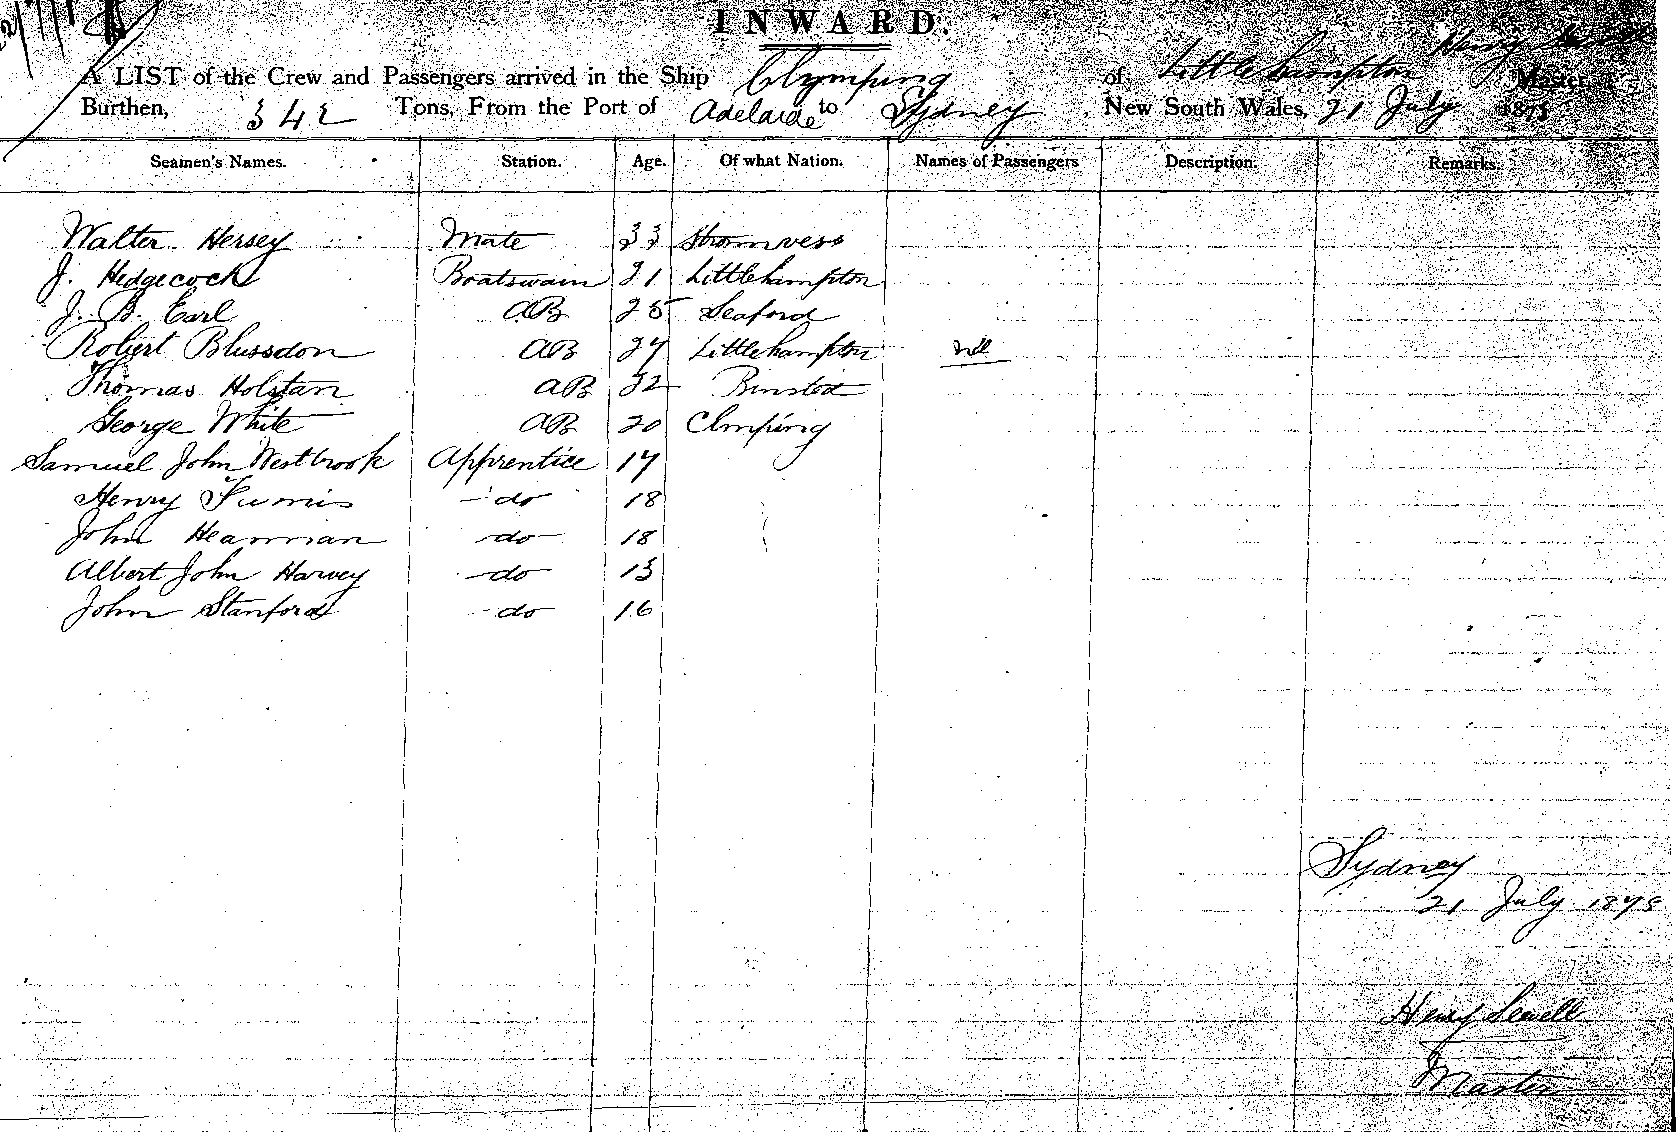 INWARD.
A LIST of the Crew and Passengers arrived in the Ship Clymping of Littlehampton Henry Master
Burthen, 342 Tons, From the Port of Adelaide to Sydney New South Wales, 21 July 1875
Seamen's Names. Station. Age. Of what Nation. Names of Passengers Description. Remarks.
Walter Hersey Mate 33 Stromness
J. Hedgecock Boatswain 21 Littlehampton
J. B. Earl AB 25 Seaford
Robert Blussdon AB 27 Littlehampton nil
Thomas Holstan AB 22 Binsted
George White AB 20 Clmping
Samuel John Westbrook Apprentice 17
Henry do 18
John Heamman do 18
Albert John Harvey do 15
John Stanford do 16
Sydney
21 July 1875
Henry Sewell
Master